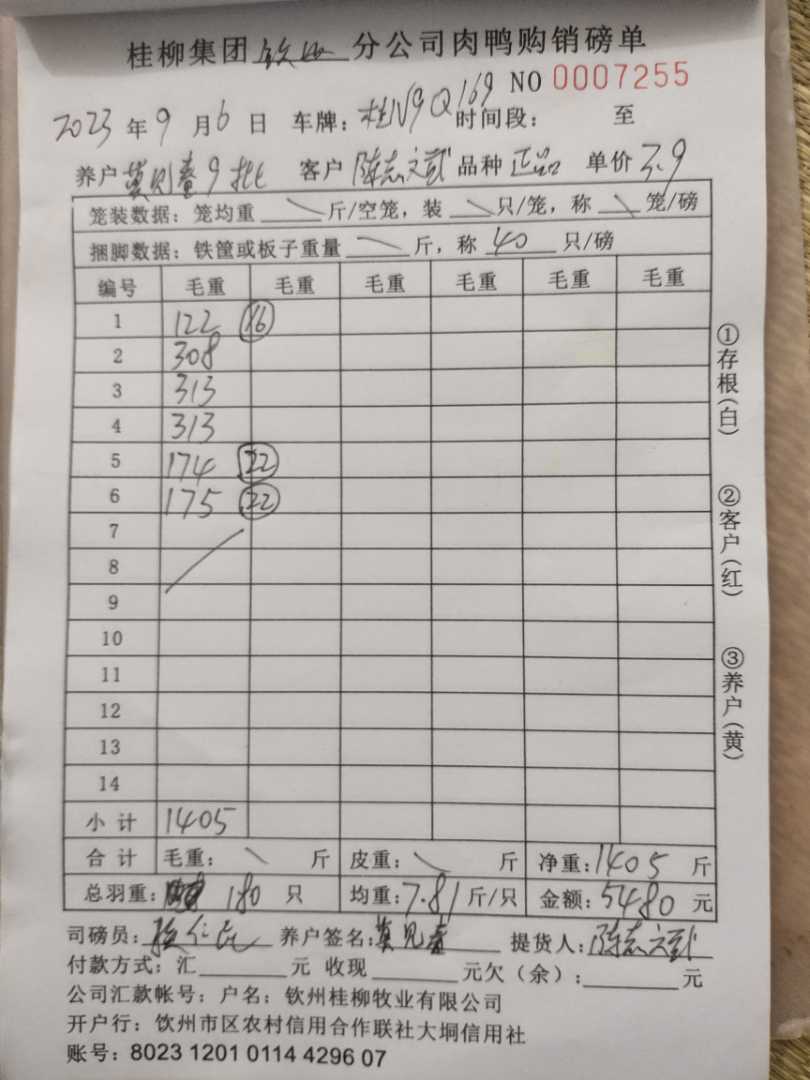 桂柳集团钦州分公司肉鸭购销磅单
NO 0007255
2023年9月6日 车牌：桂N9Q169 时间段： 至
养户 莫见鸾9批 客户 陈志文武 品种 正品 单价 3.9
笼装数据：笼均重 \ 斤/空笼，装 \ 只/笼，称 \ 笼/磅
捆脚数据：铁筐或板子重量 \ 斤，称 40 只/磅
编号 毛重 毛重 毛重 毛重 毛重 毛重
1 122 16
2 308
3 313
4 313
5 174 22
6 175 22
7
8
9
10
11
12
13
14
小计 1405
合计 毛重： \ 斤 皮重： \ 斤 净重：1405 斤
总羽重： 180 只 均重：7.81 斤/只 金额：5480 元
司磅员： 养户签名：莫见 提货人：陈志文
付款方式：汇 元 收现 元欠（余）： 元
公司汇款帐号：户名：钦州桂柳牧业有限公司
开户行：钦州市区农村信用合作联社大垌信用社
账号：8023 1201 0114 4296 07
①存根（白）
②客户（红）
③养户（黄）